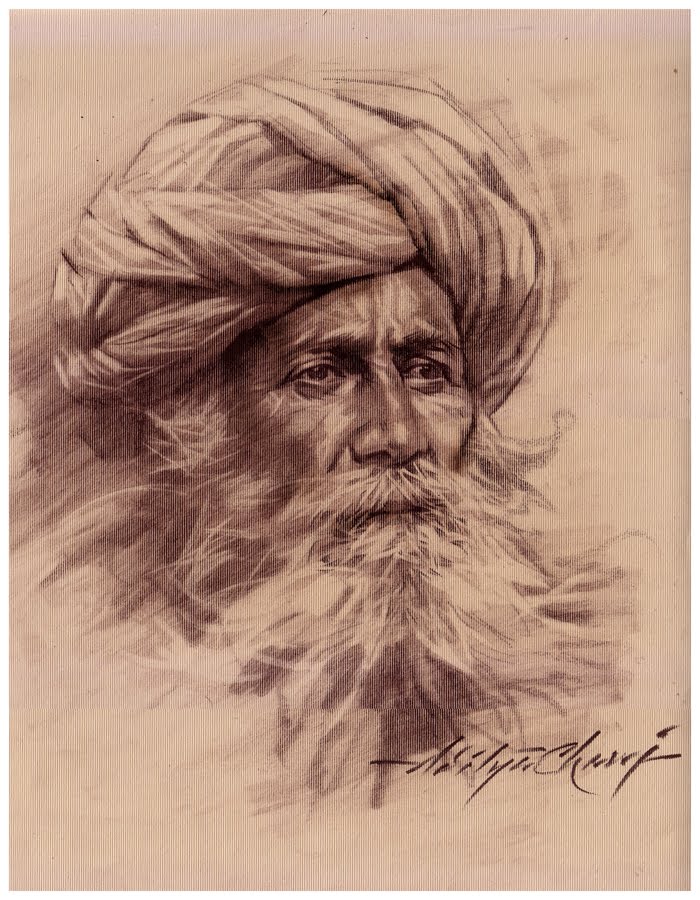 Aditya Chari